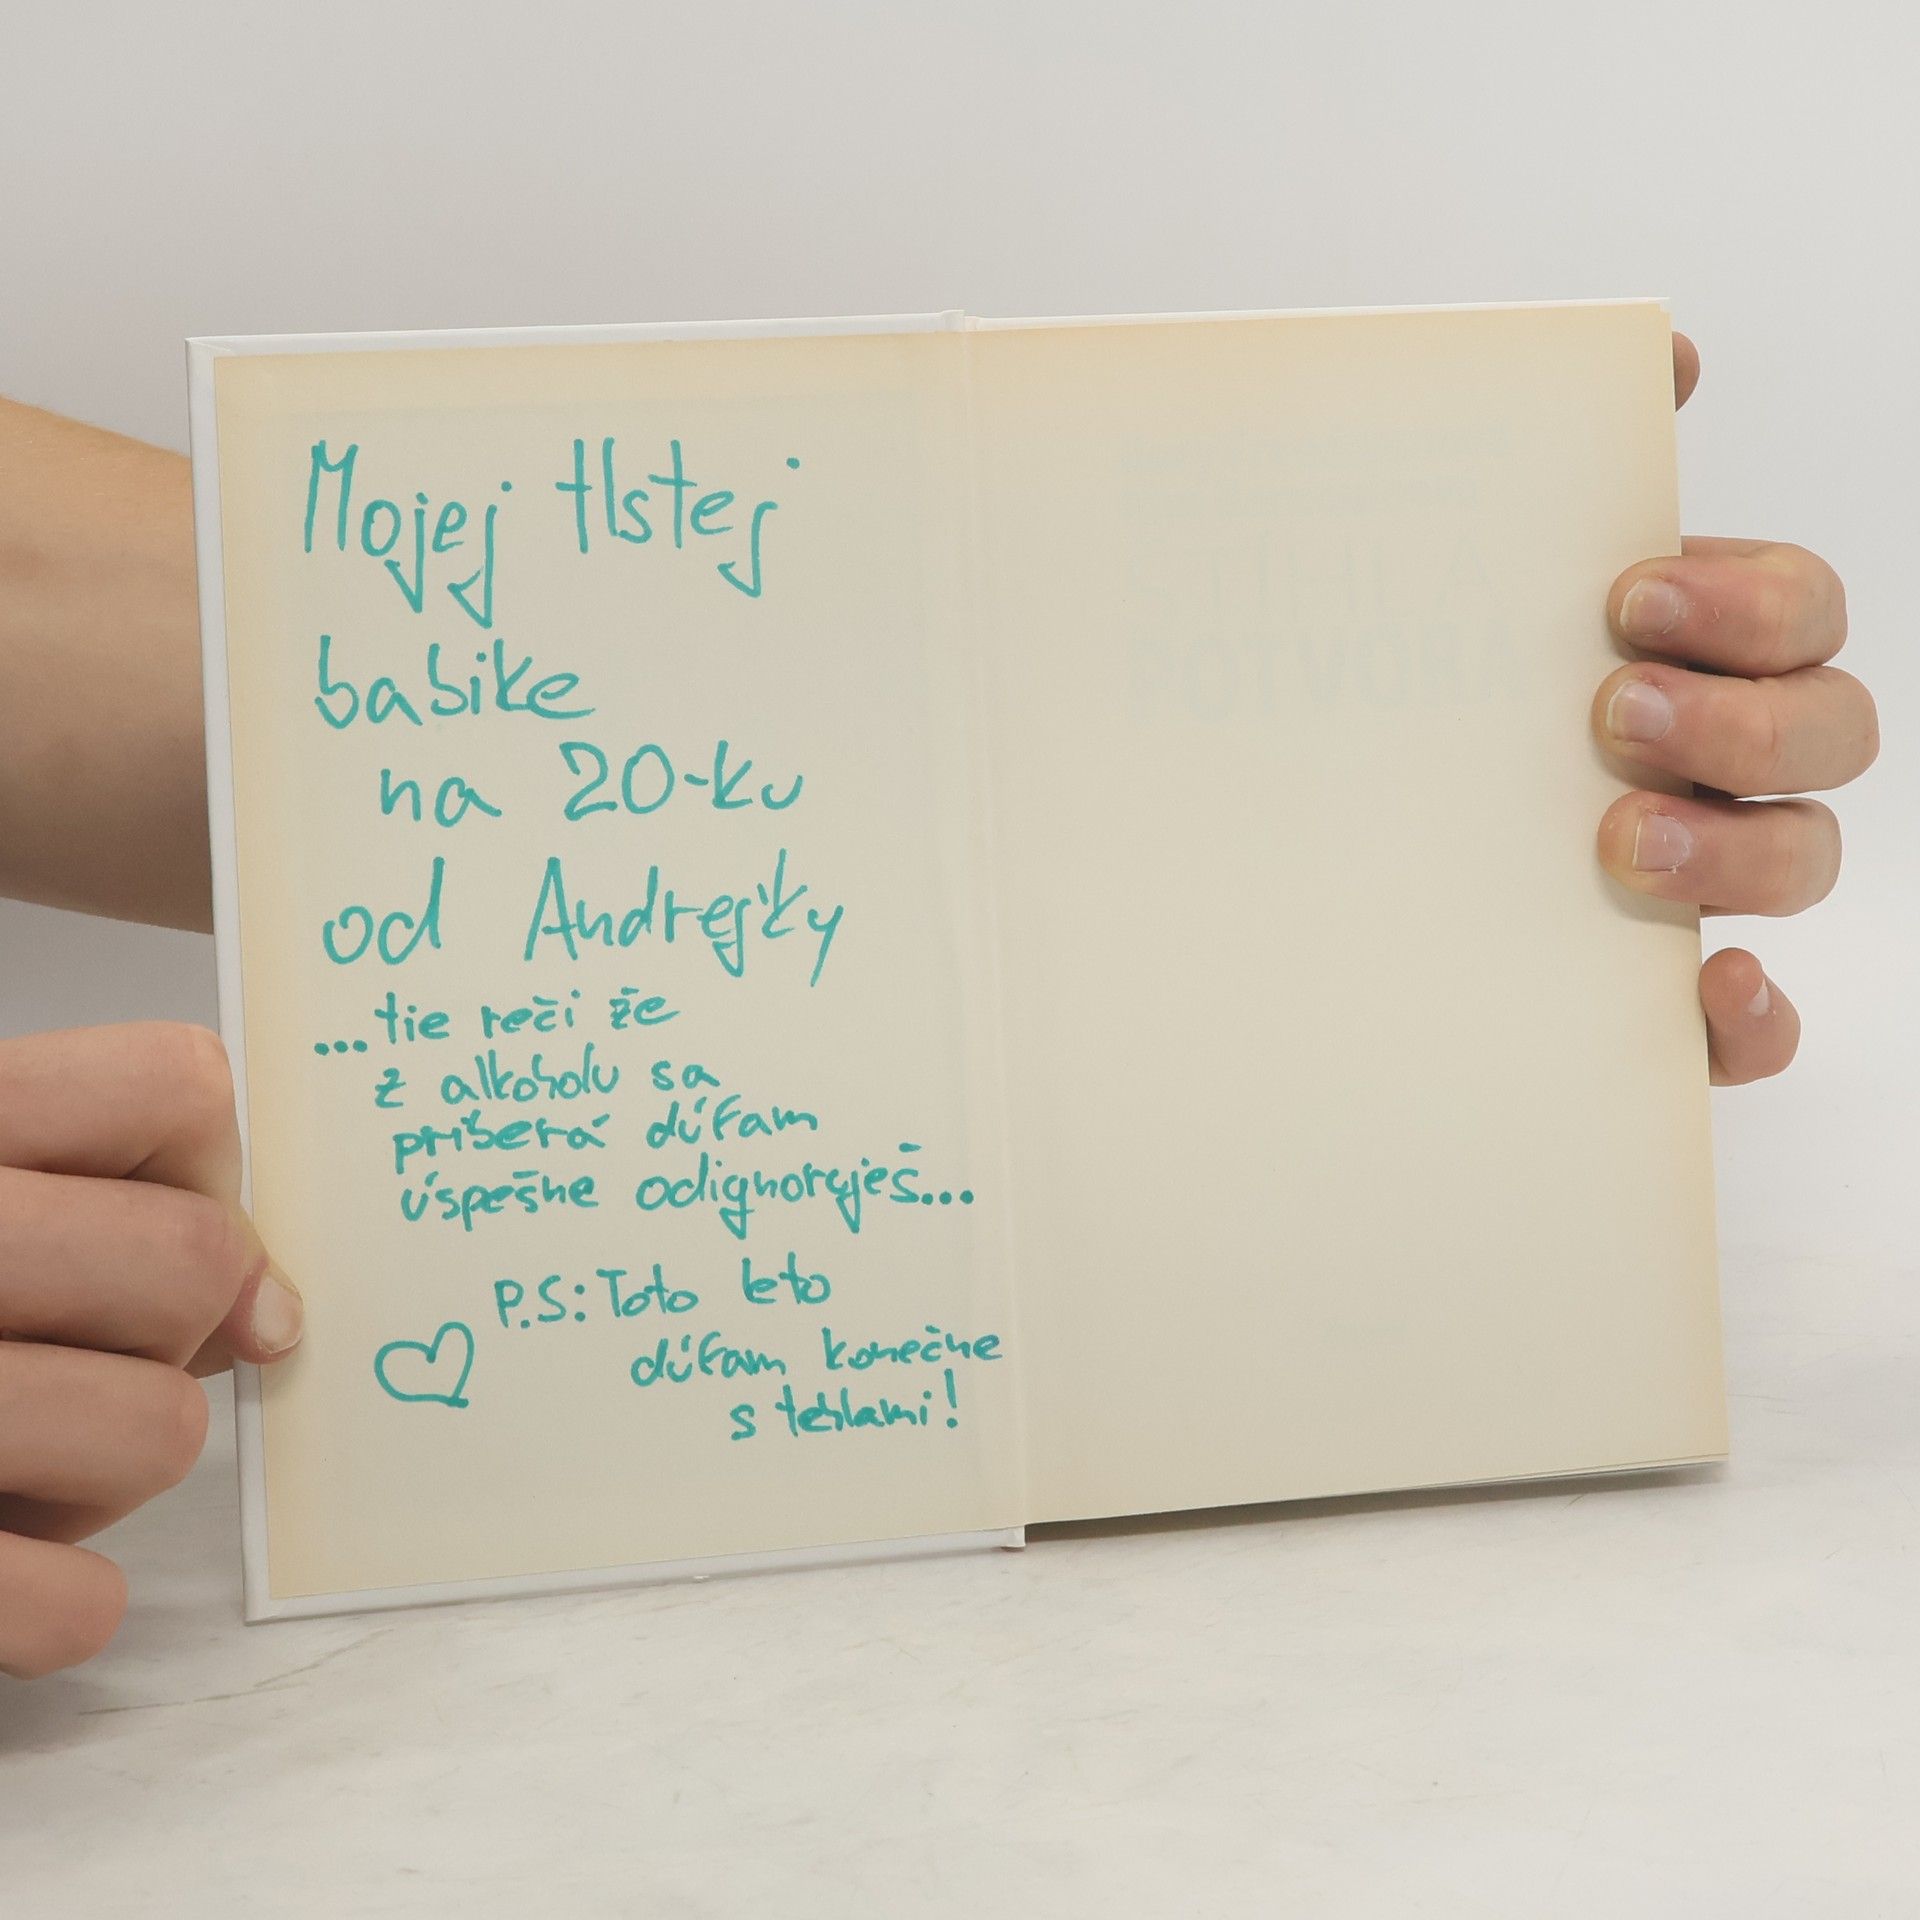 Mojej tlstej
babike
na 20-ku
od Andrejky
...tie reči že
z alkoholu sa
priberá dúfam
úspešne odignoruješ...
P.S: Toto leto
dúfam konečne
s tehlami!